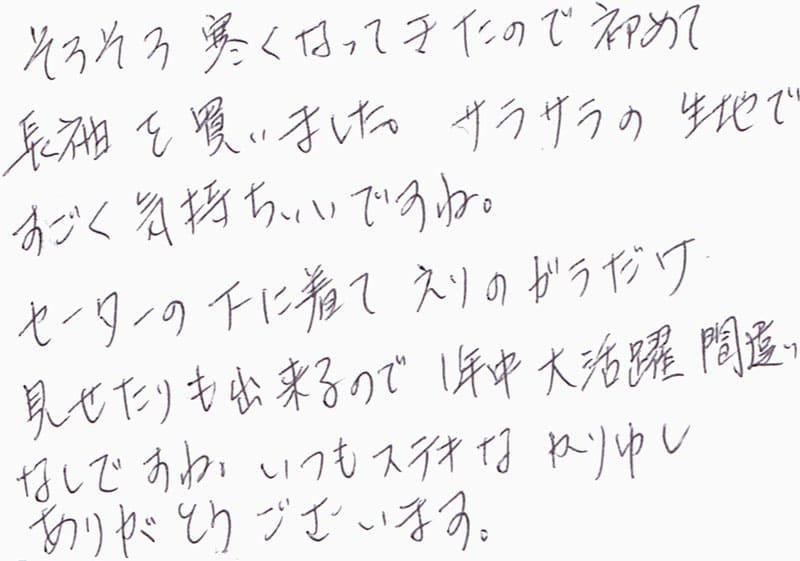 そろそろ寒くなってきたので初めて
長袖を買いました。サラサラの生地で
すごく気持ちいいですね。
セーターの下に着てえりのガラだけ
見せたりも出来るので1年中大活躍間違い
なしですね。いつもステキなかりゆし
ありがとうございます。